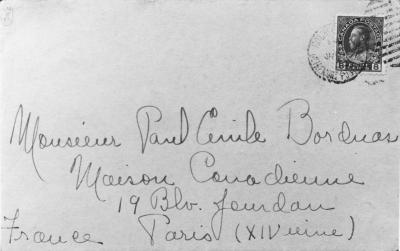 CANADA POSTAGE
5 CENTS 5
Monsieur Paul Emile Borduas
Maison Canadienne
19 Blv. Jourdan
France Paris (XIVieme)